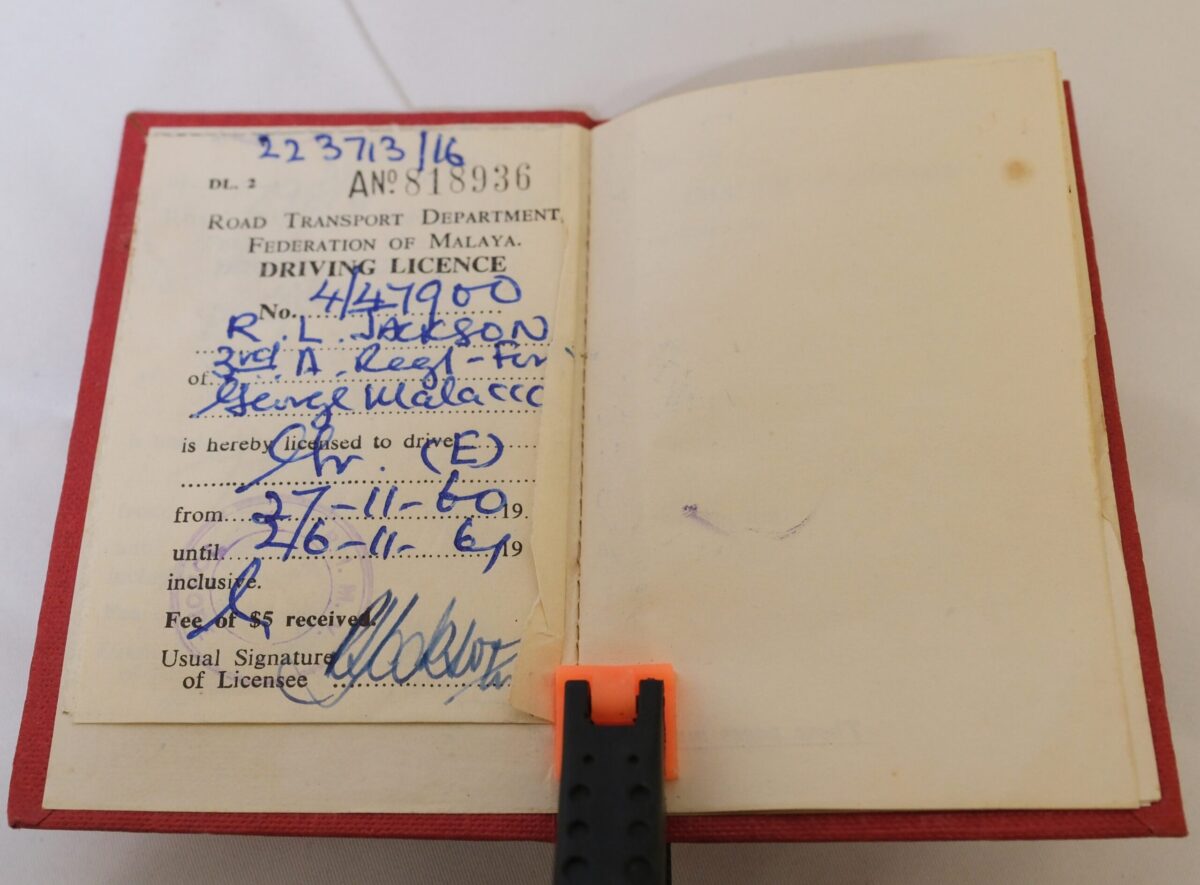 223713/16
DL. 2 ANº 818936
ROAD TRANSPORT DEPARTMENT,
FEDERATION OF MALAYA.
DRIVING LICENCE
No. 4/47900
R. L. JACKSON
of 3rd. A. Regt-For
George Malacc
is hereby licensed to drive
(E)
from 27-11-60 19
until 26-11-61 19
inclusive.
Fee of $5 received.
Usual Signature
of Licensee